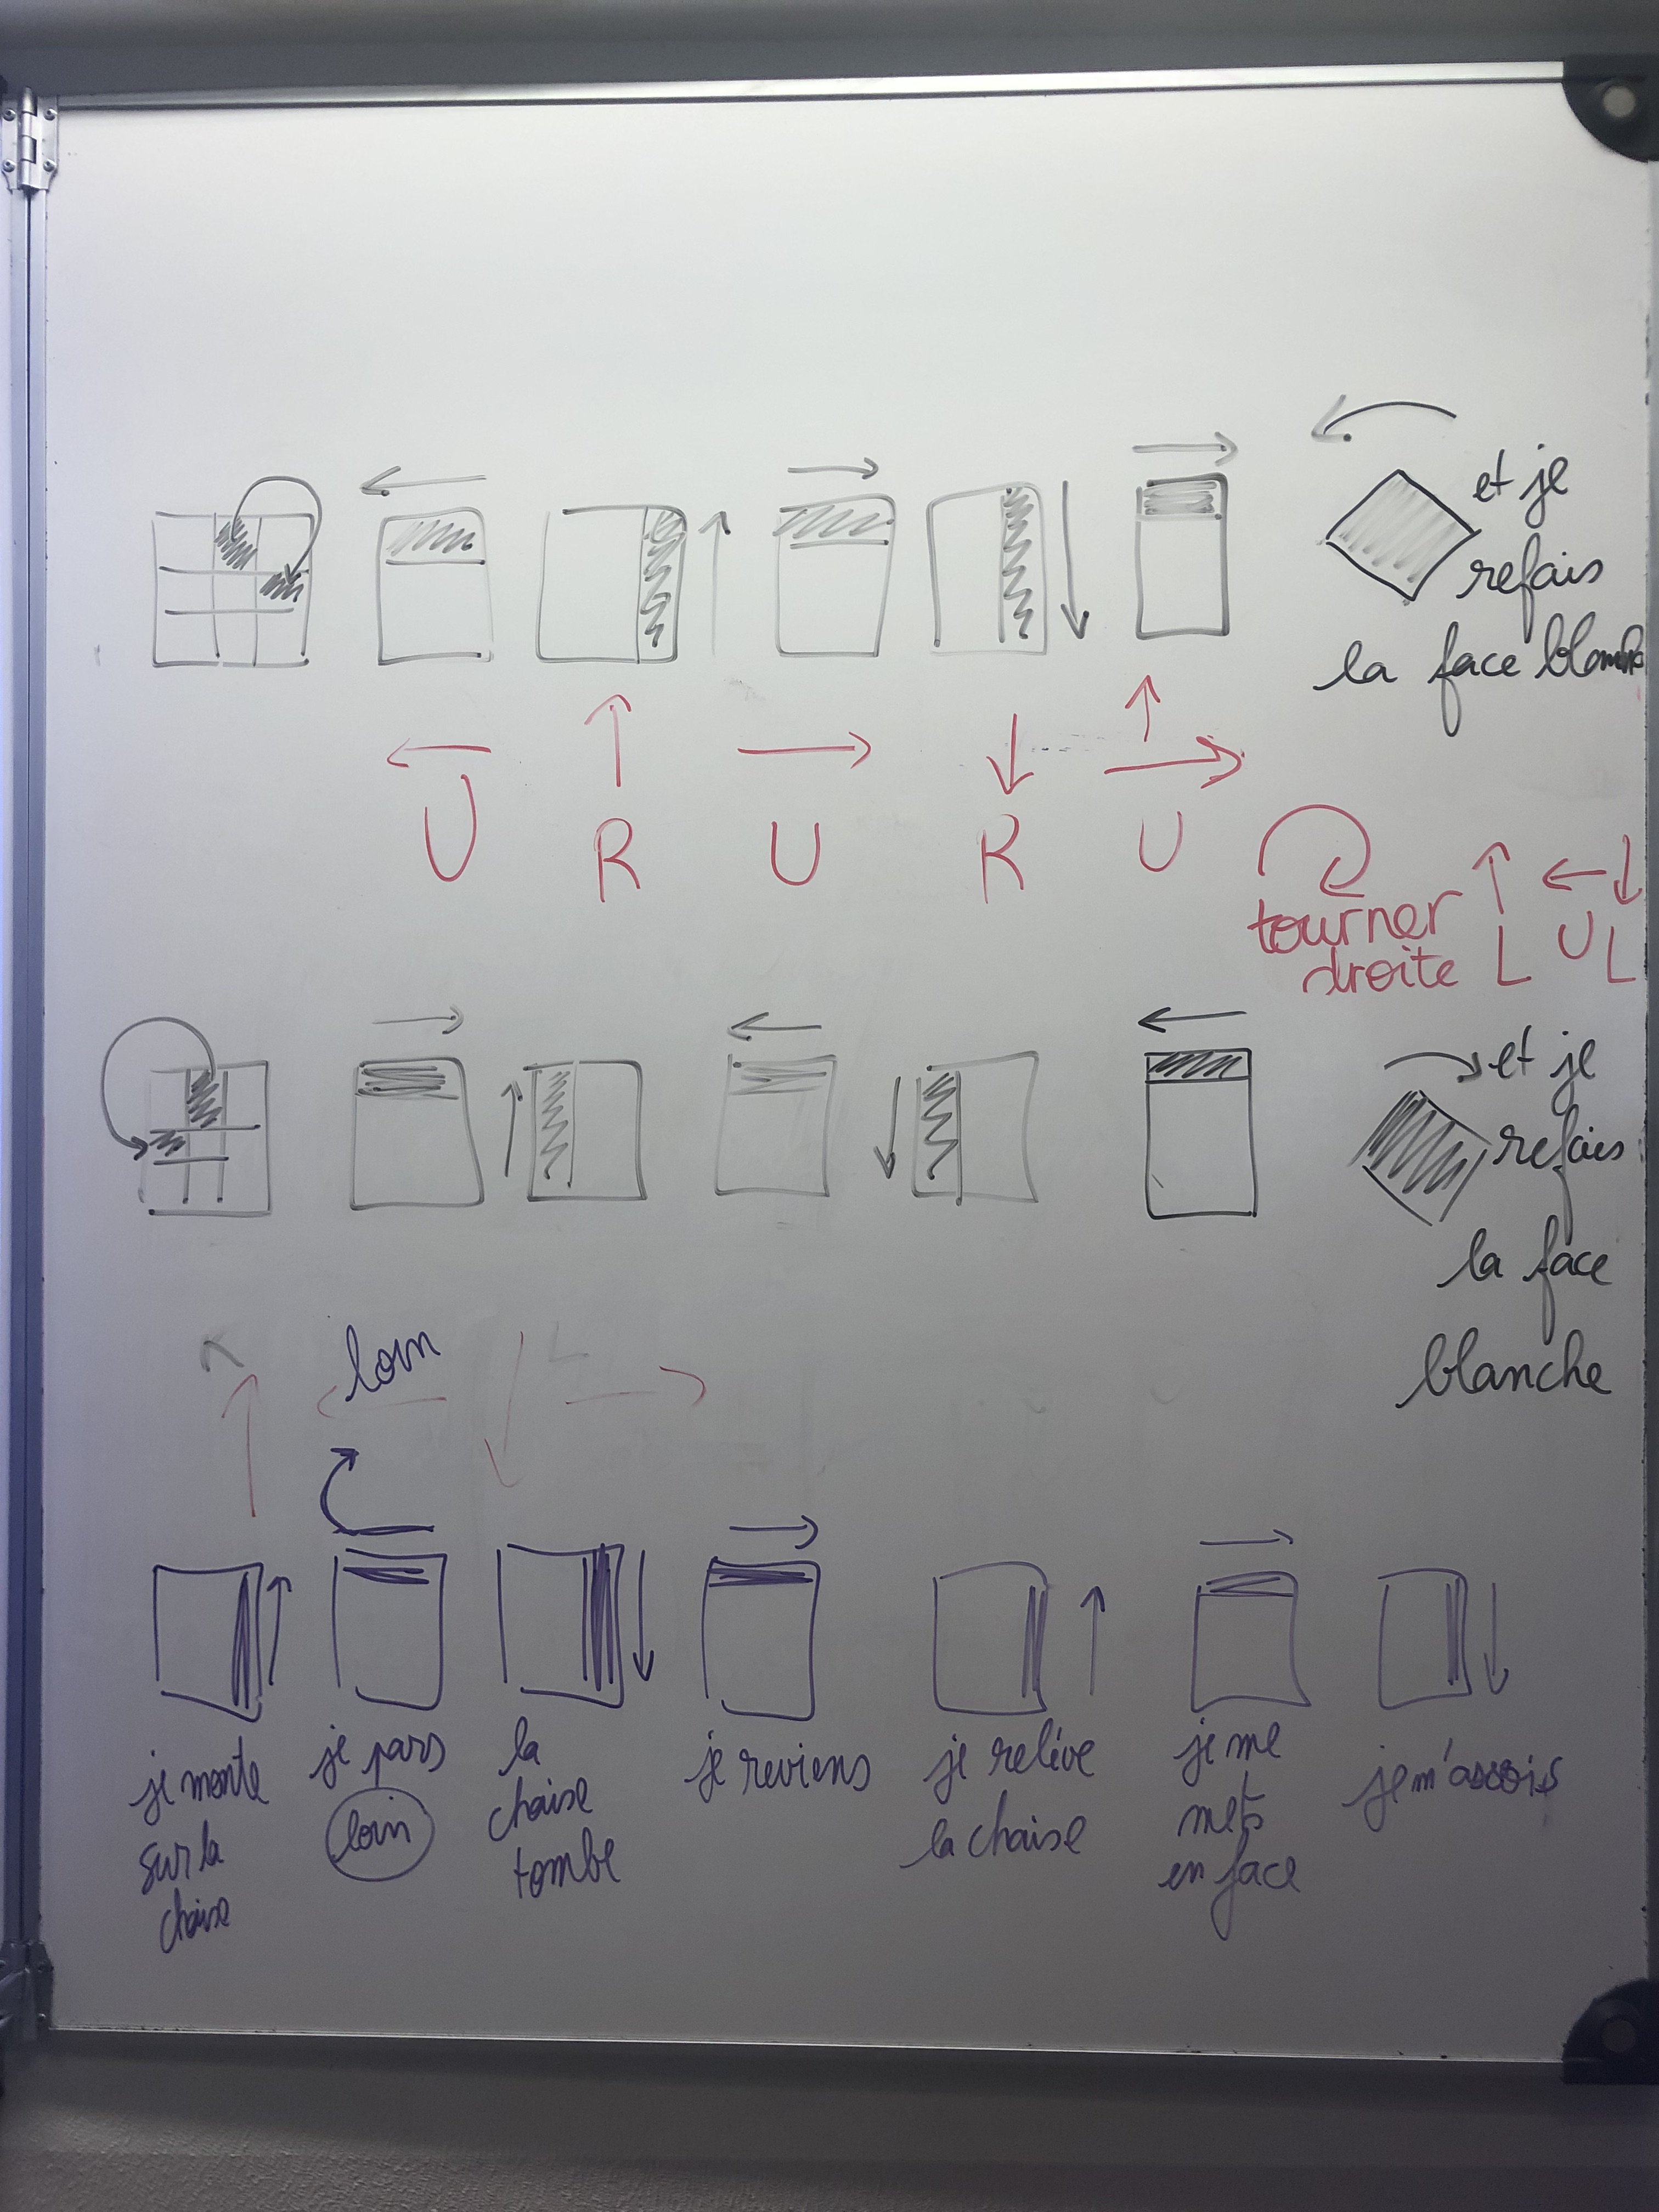 et je
refais
la face blanche
U R U R U
tourner
droite L U L
et je
refais
la face
blanche
loin
je monte
sur la
chaise
je pars
loin
la
chaise
tombe
je reviens
je relève
la chaise
je me
mets
en face
je m'assois